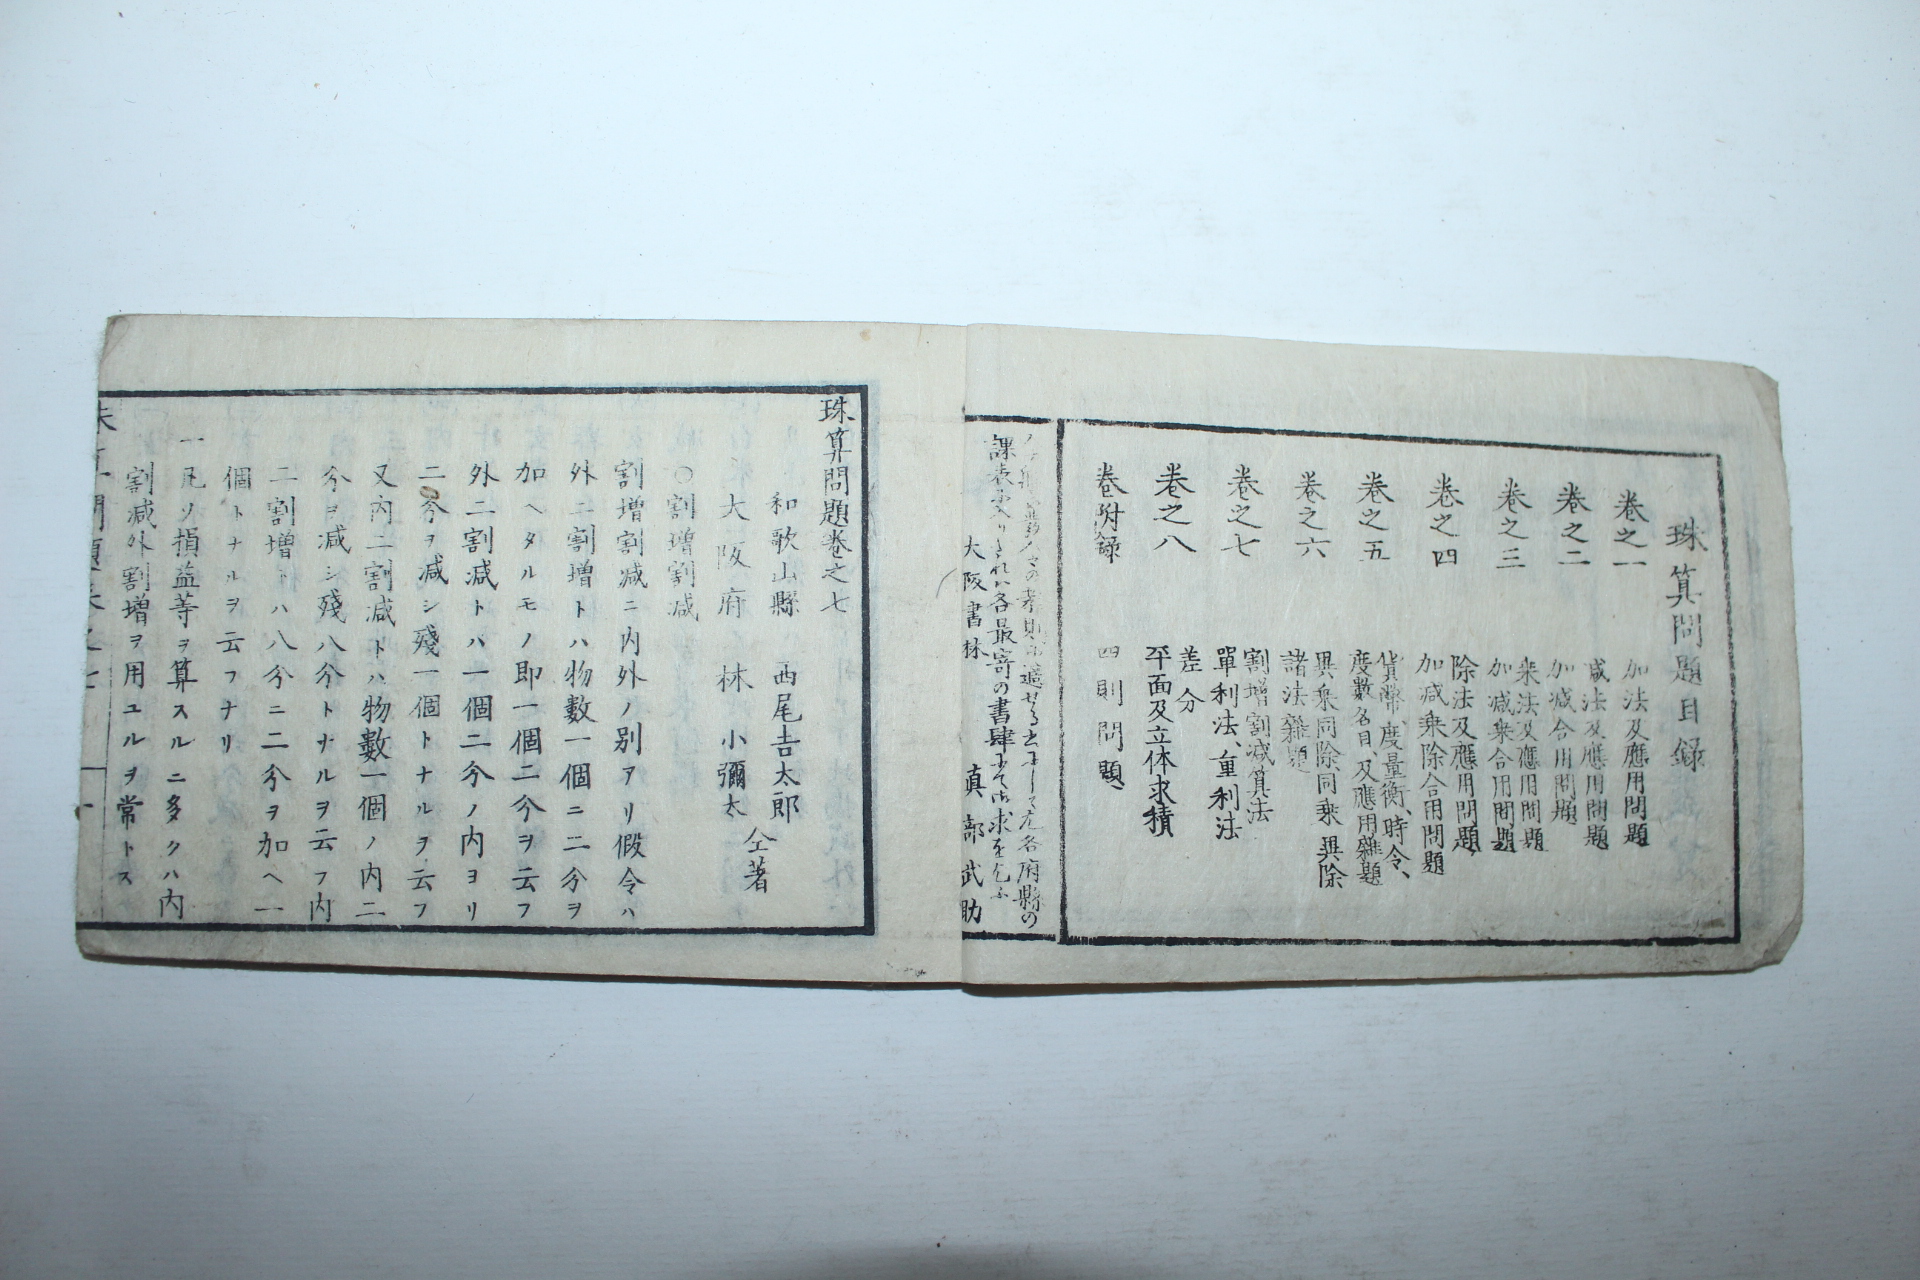 珠算問題目録
巻之一 加法及應用問題
巻之二 減法及應用問題
加減合用問題
巻之三 乗法及應用問題
加減乗合用問題
巻之四 除法及應用問題
加減乗除合用問題
巻之五 貨幣、度量衡、時令、
度數名目、及應用雜題
巻之六 異乗同除同乗異除
諸法雜題
巻之七 割増割減算法
單利法、重利法
巻之八 差分
平面及立体求積
巻附録 四則問題
各府縣の
課表 各最寄の書肆 求を乞ふ
大阪書林 真部武助
珠算問題巻之七
和歌山縣 西尾吉太郎
大阪府 林小彌太
仝著
○割増割減
割増割減ニ内外ノ別アリ假令ハ
外二割増トハ物數一個ニ二分ヲ
加ヘタルモノ即一個二分ヲ云フ
外二割減トハ一個二分ノ内ヨリ
二分ヲ減シ殘一個トナルヲ云フ
又内二割減トハ物數一個ノ内二
分ヲ減シ殘八分トナルヲ云フ内
二割増トハ八分ニ二分ヲ加ヘ一
個トナルヲ云フナリ
一凡ソ損益等ヲ算スルニ多クハ内
割減外割増ヲ用ユルヲ常トス